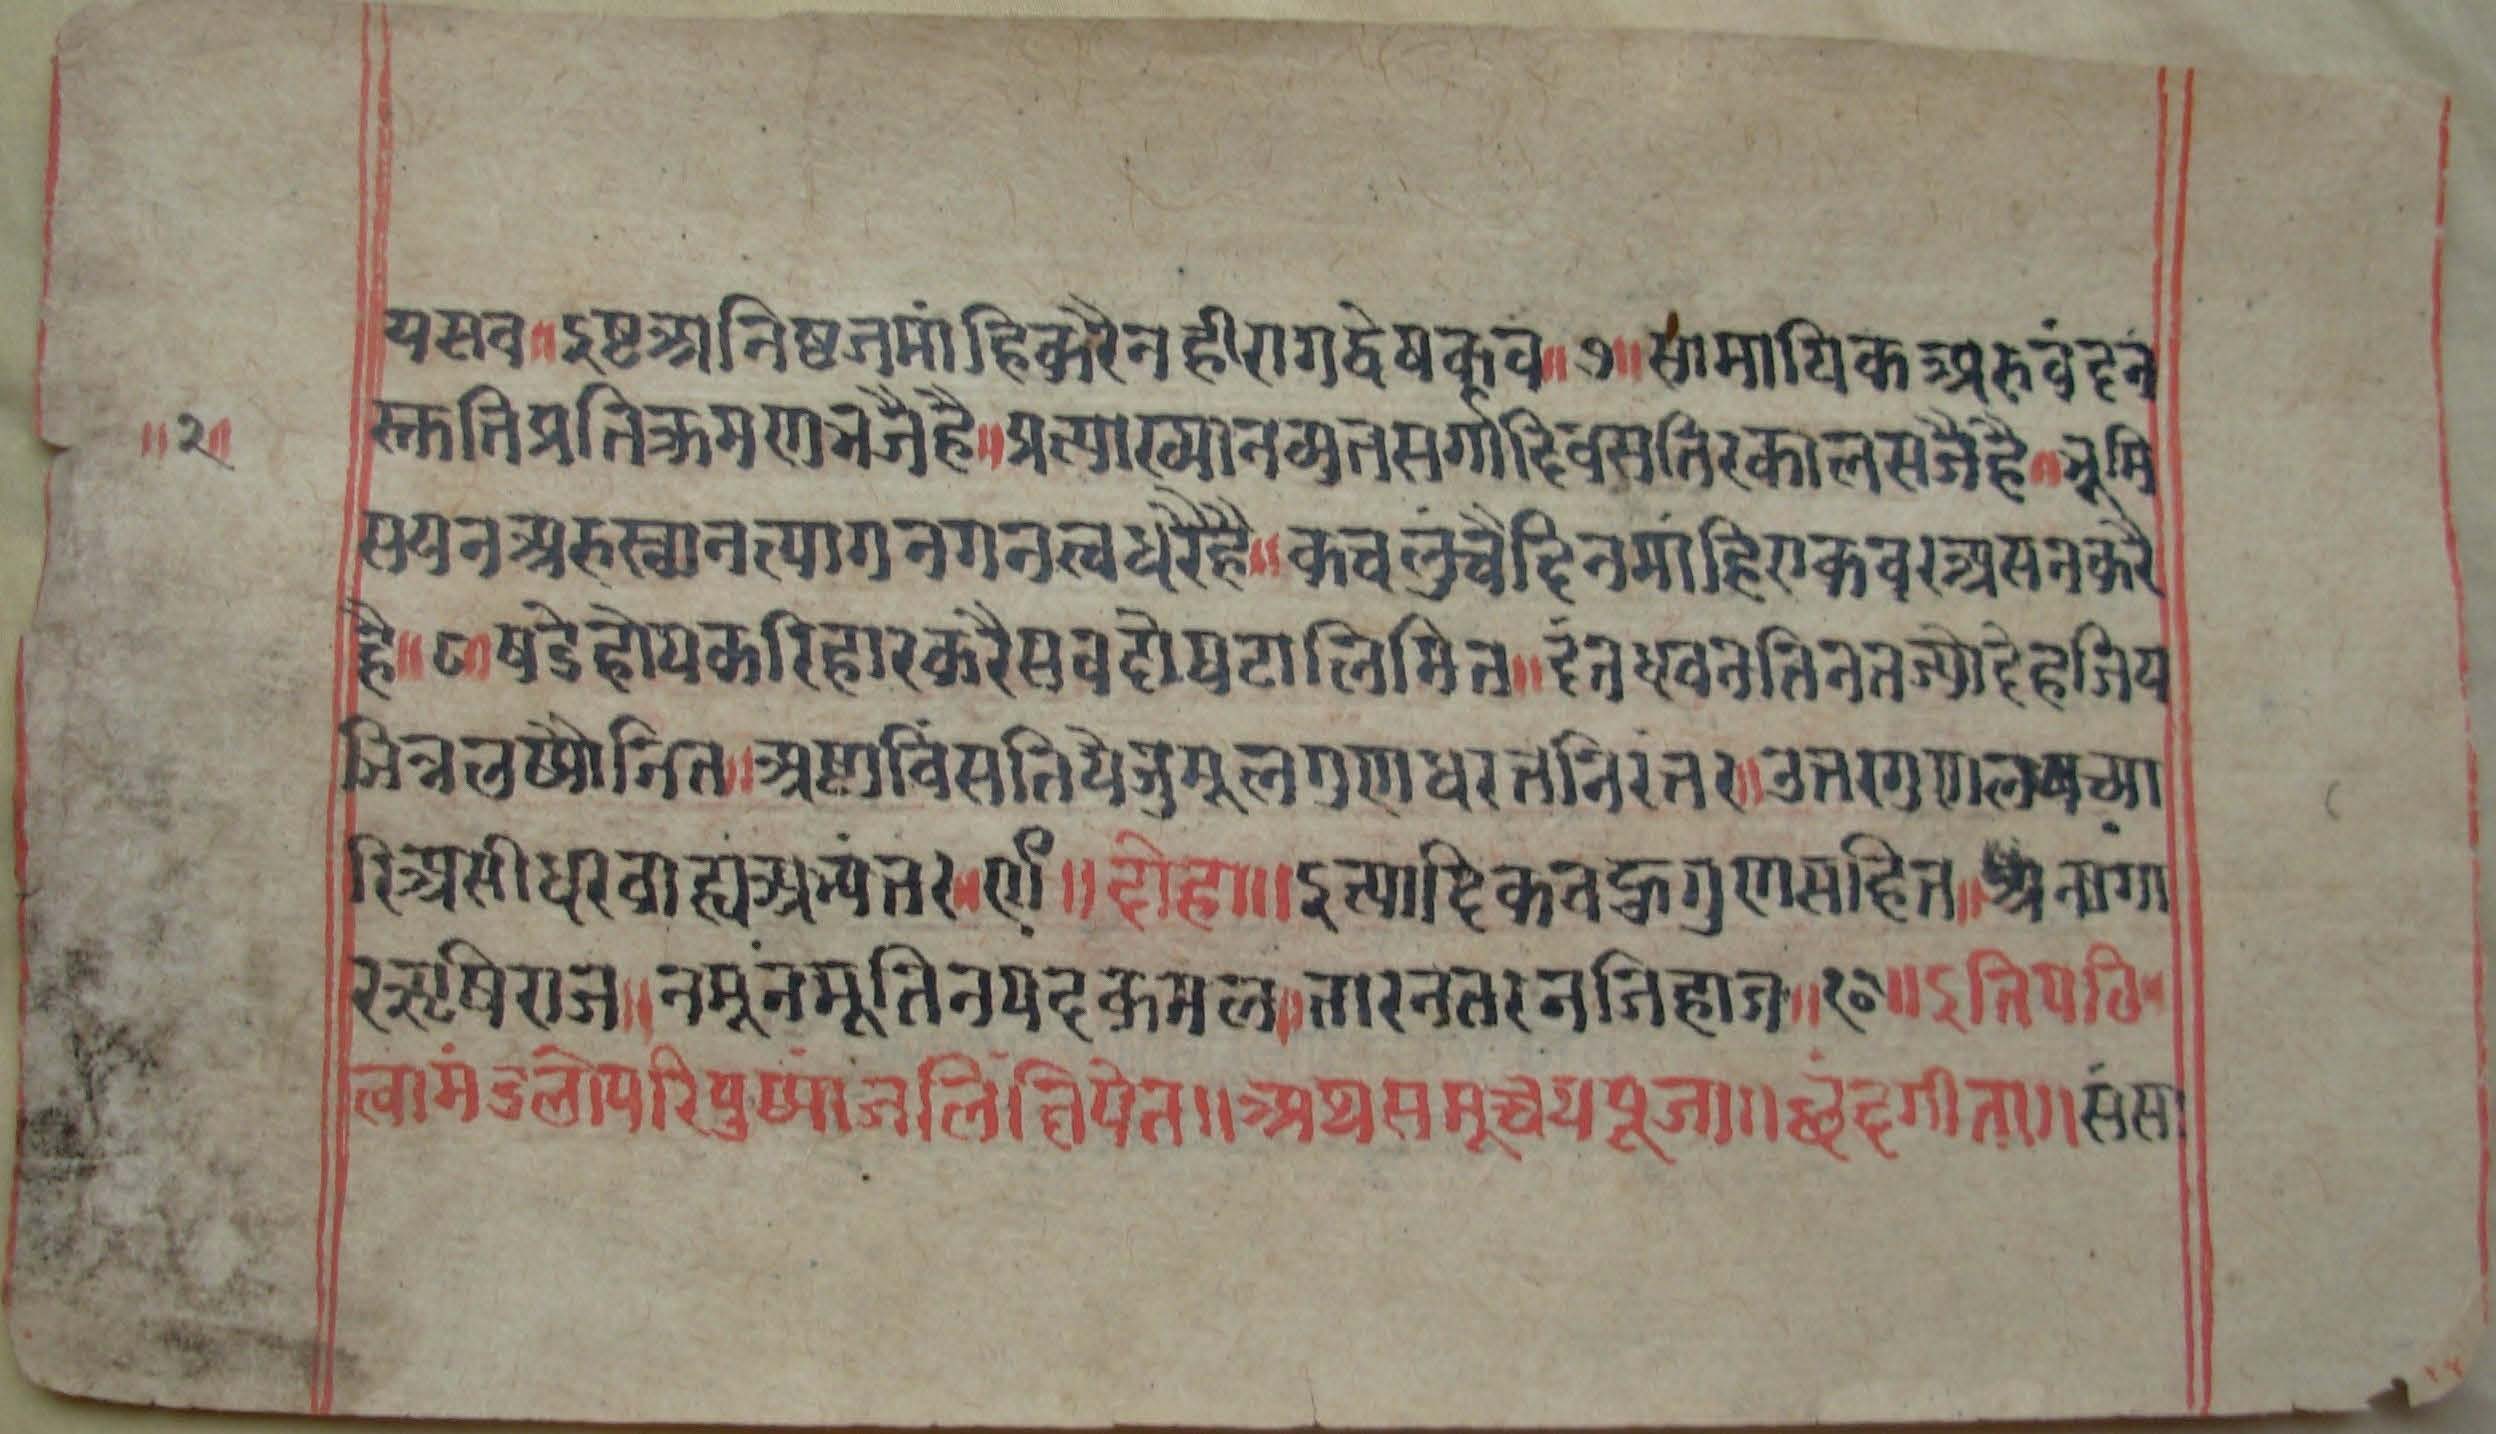 यसव ॥ इष्टआनिष्टजुमांहिकरैनहीरागद्वेषकव ॥ ७ ॥ सामायिकअरुवंदन
॥ २ ॥
स्क्ततिप्रतिक्रमणभजैहै ॥ प्रत्याख्यानव्युतसर्गादिवसतिरकालसजैहै ॥ भूमि
सयनअरुस्नानत्यागनगनत्वधरैहै ॥ कचलुंचैदिनमांहिएकवरअसनकरै
है ॥ ८ ॥ षडेहोयकरिहारकरैसवदोषटालिमित ॥ दंतधवनतिनतज्योदेहजिय
भिन्नलष्योनित ॥ अष्टाविंसतियेजुमूलगुणधरतनिरंतर ॥ उत्तरगुणलषच्या
रिअसीधरवाह्यअभ्यंतर ॥ ९ ॥ दोहा ॥ इत्यादिकवहुगुणसहित ॥ अनागा
रऋषिराज ॥ नमूंनमूतिनपदकमल ॥ तारनतरनजिहाज ॥ १० ॥ इतिपठि
त्वामंडलोपरिपुष्पांजलिंक्षिपेत ॥ अथसमूच्चयपूजा ॥ छंदगीता ॥ संसा